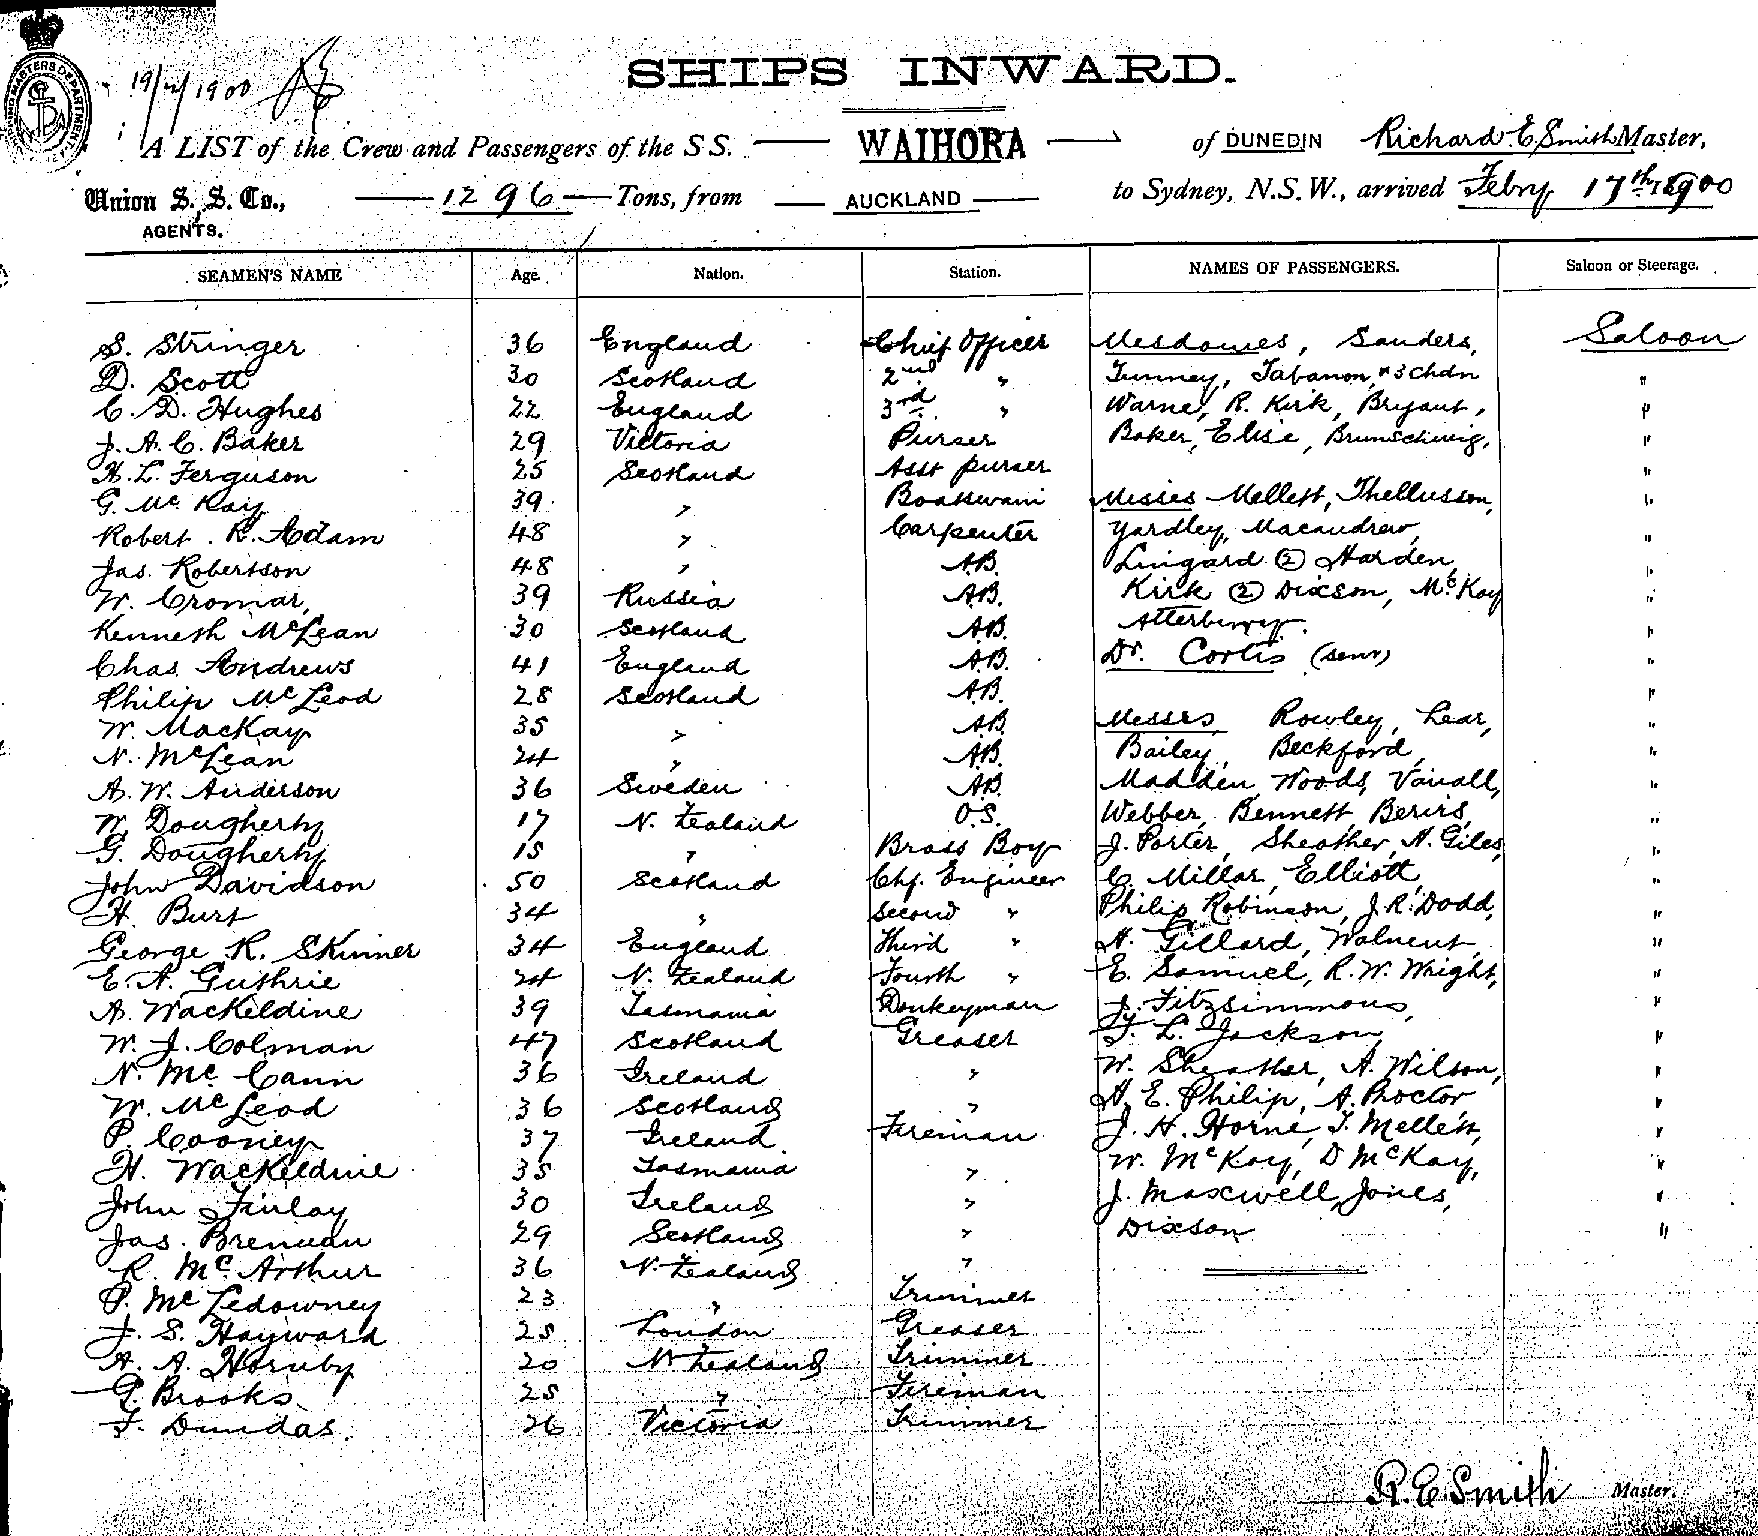 19/2/1900
SHIPS INWARD.
A LIST of the Crew and Passengers of the S S. WAIHORA of DUNEDIN Richard E Smith Master,
Union S. S. Co., 1296 Tons, from AUCKLAND to Sydney, N.S.W., arrived Febry 17th 1900
AGENTS.
SEAMEN'S NAME Age. Nation. Station. NAMES OF PASSENGERS. Saloon or Steerage.
S. Stringer 36 England Chief Officer Mesdames, Sanders, Saloon
D. Scott 30 Scotland 2nd " Tunney, Tabanon, & 3 Chdn "
C. D. Hughes 22 England 3rd " Warne, R. Kirk, Bryant, "
J. A. C. Baker 29 Victoria Purser Baker, Elise, Brunschwig, "
H. L. Ferguson 25 Scotland Asst purser "
G. Mc Kay 39 " Boatswain Misses Mellett, Thellusson, "
Robert. R. Adam 48 " Carpenter Yardley, Macandrew, "
Jas. Robertson 48 " A.B. Lingard (2) Harden, "
W. Cromar, 39 Russia A.B. Kirk (2) Dixson, McKay "
Kenneth McLean 30 Scotland A.B. Atterberry. "
Chas Andrews 41 England A.B. Dr. Cortis (senr) "
Philip McLeod 28 Scotland A.B. "
W. MacKay 35 " A.B. Messrs Rowley, Lear, "
N. McLean 24 " A.B. Bailey, Beckford, "
A. W. Anderson 36 Sweden A.B. Madden, Woods, Vanall, "
W. Dougherty 17 N. Zealand O.S. Webber, Bennett, "
G. Dougherty 15 " Brass Boy J. Porter, Sheather, H. Giles, "
John Davidson 50 Scotland Chf. Engineer C. Millar, Elliott, "
H. Burt 34 " Second " Philip Robinson, J. R. Dodd, "
George R. Skinner 34 England Third " H. Gillard, "
E. A. Guthrie 24 N. Zealand Fourth " E. Samuel, R. W. Wright, "
A. Wackeldine 39 Tasmania Donkeyman J. Fitzsimmons, "
W. J. Colman 47 Scotland Greaser F. L. Jackson, "
N. Mc Cann 36 Ireland " W. Sheather, A. Wilson, "
W. McLeod 36 Scotland " H. E. Philip, A. Proctor "
P. Cooney 37 Ireland Fireman J. H. Horne, T. Mellett, "
H. Wackeldine 35 Tasmania " W. McKay, D McKay, "
John Finlay 30 Ireland " J. Maxwell, Jones, "
Jas. Brennan 29 Scotland " Dixson "
R. Mc Arthur 36 N. Zealand "
P. Mc Ledowney 23 " Trimmer
J. S. Hayward 25 London Greaser
A. A. Hornby 20 N Zealand Trimmer
G. Brooks 25 " Fireman
F. Dundas. 26 Victoria Trimmer
R. E. Smith Master.